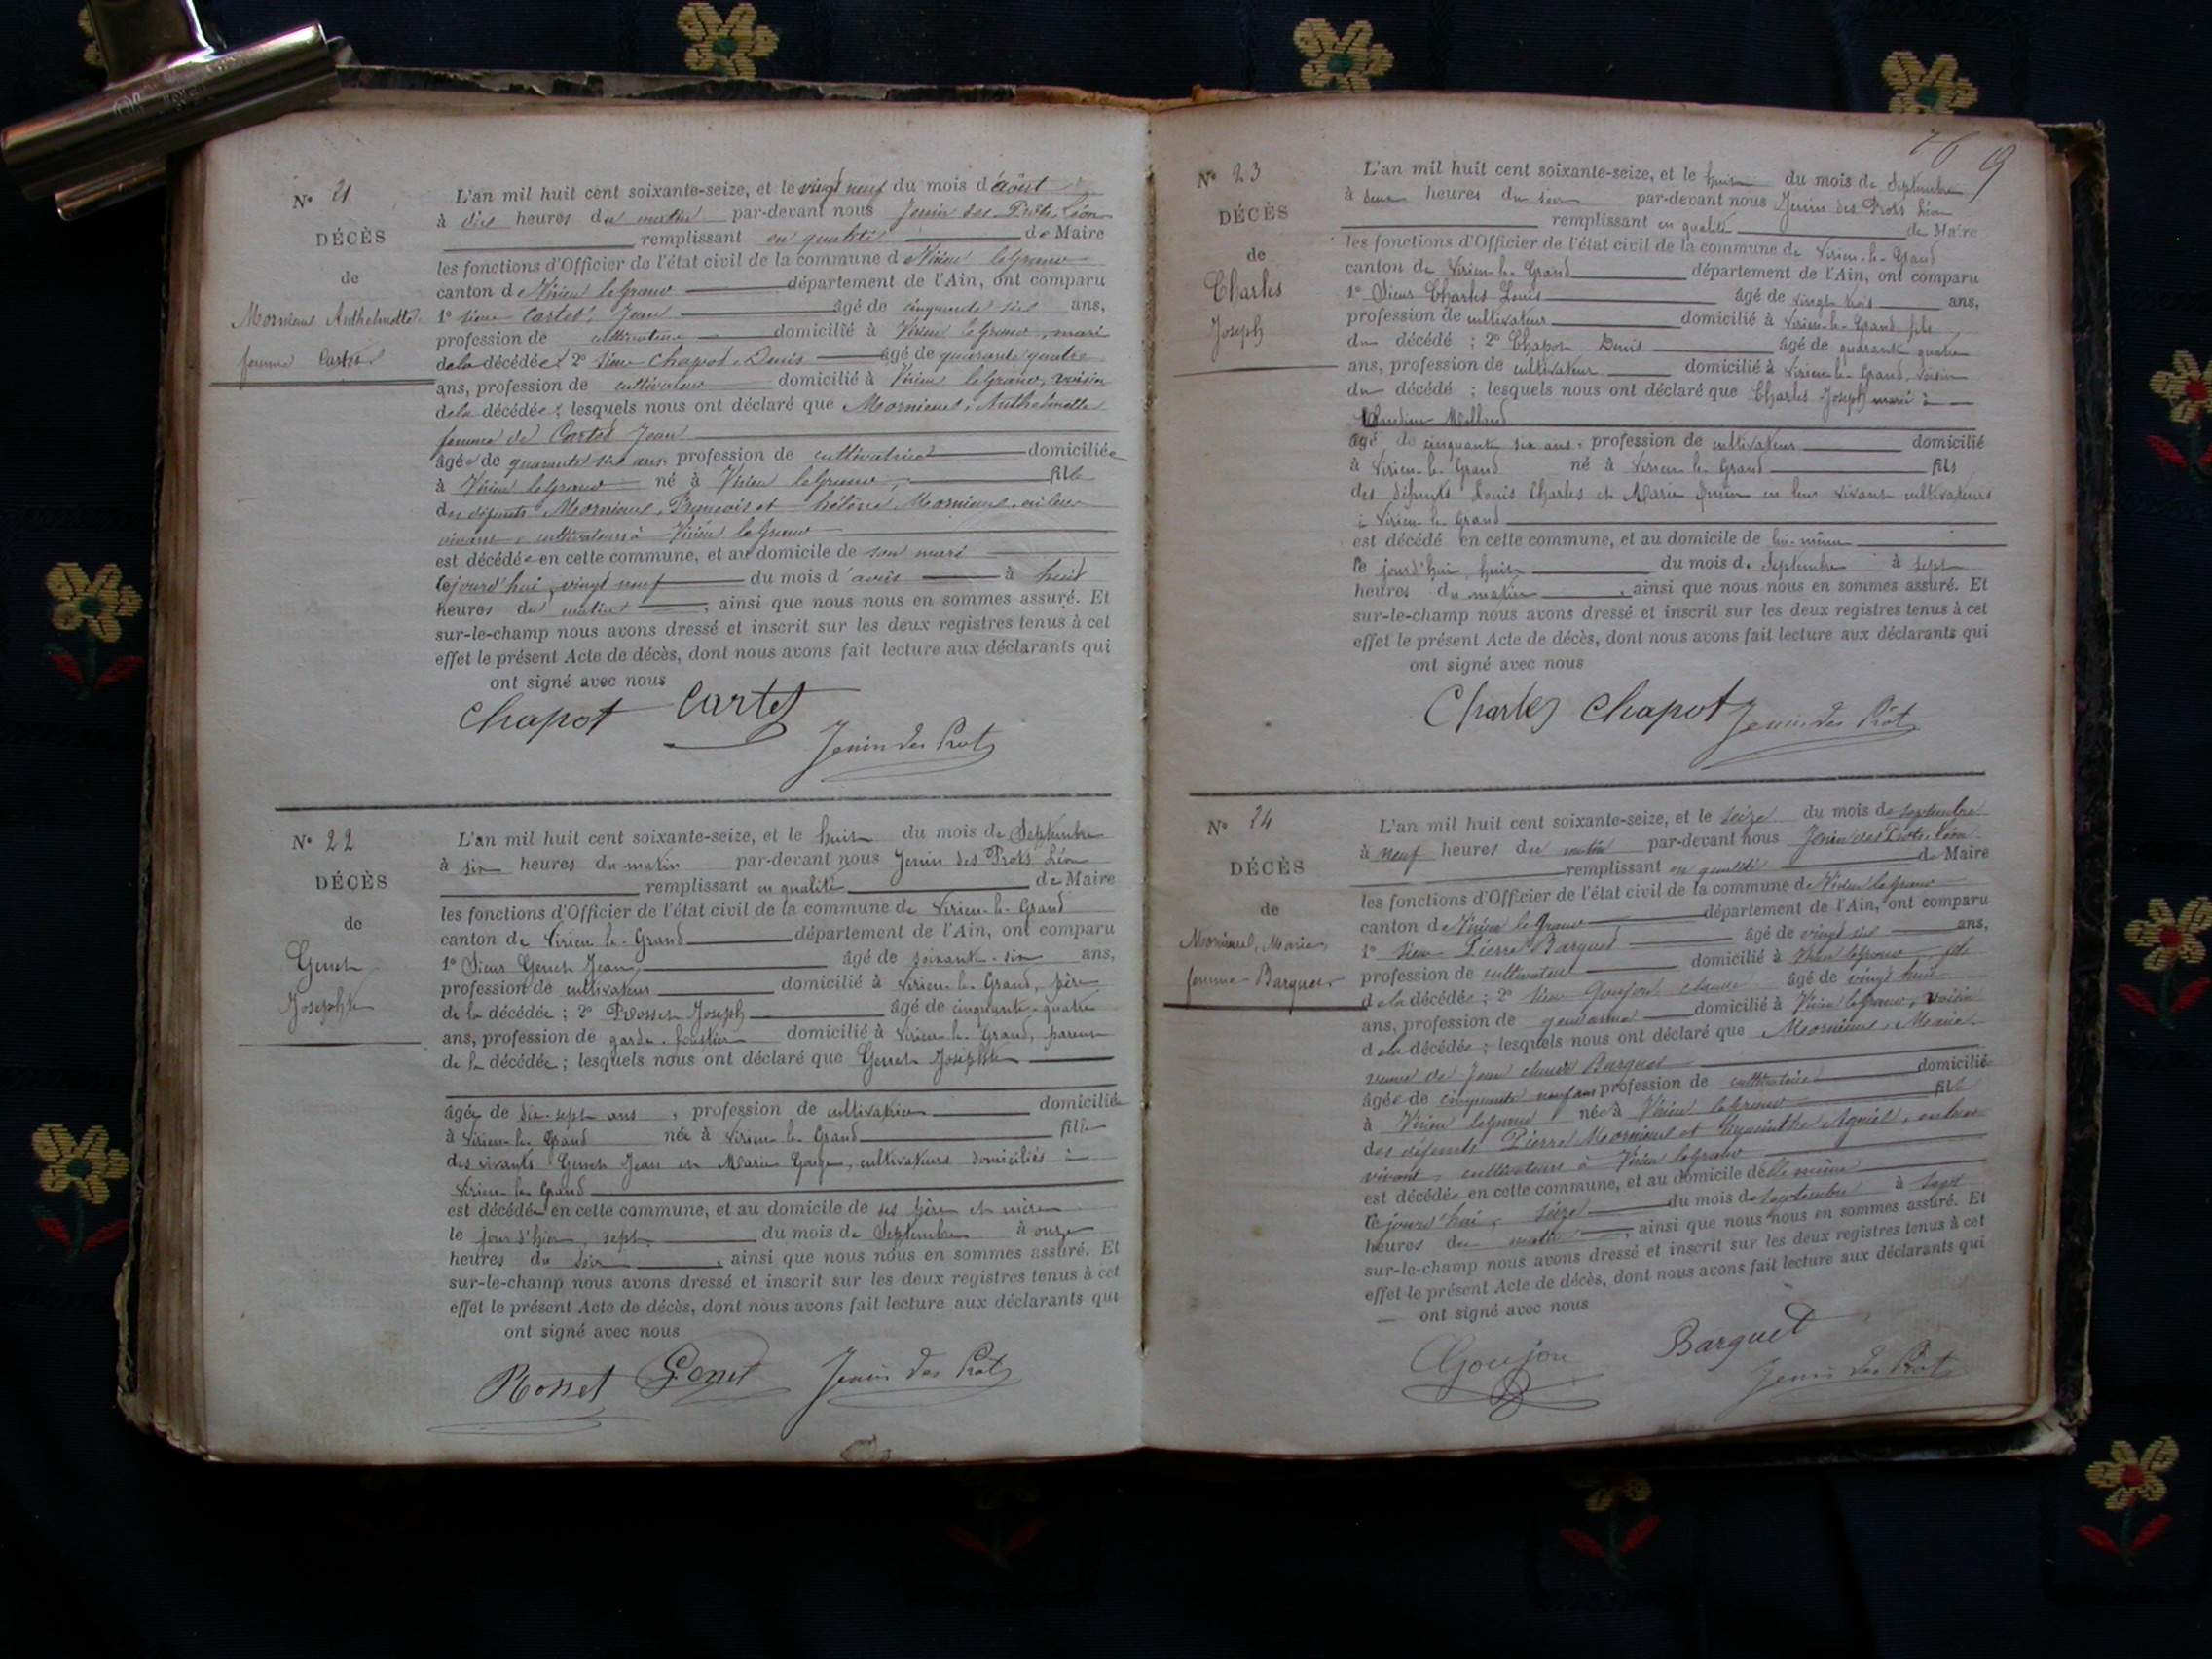 N° 21
DÉCÈS
de
Mornieux Anthelmette
femme Cartet
L'an mil huit cent soixante-seize, et le vingt neuf du mois d'août
à dix heures du matin par-devant nous Jenin des Prôts Léon
remplissant en qualité de Maire
les fonctions d'Officier de l'état civil de la commune d Virieu le grand
canton de Virieu le grand département de l'Ain, ont comparu
1° sieur Cartet, Jean âgé de cinquante six ans,
profession de cultivateur domicilié à Virieu le grand, mari
de la décédée; 2° sieur Chapot, Denis âgé de quarante quatre
ans, profession de cultivateur domicilié à Virieu le grand, voisin
de la décédée; lesquels nous ont déclaré que Mornieux, Anthelmette
femme de Cartet Jean
âgée de quarante six ans, profession de cultivatrice domiciliée
à Virieu le grand né à Virieu le grand, fille
des défunts Mornieux, François et hélène Mornieux, en leur
vivant, cultivateurs à Virieu le grand
est décédée en cette commune, et au domicile de son mari
le jourd'hui, vingt neuf du mois d'août à huit
heures du matin, ainsi que nous nous en sommes assuré. Et
sur-le-champ nous avons dressé et inscrit sur les deux registres tenus à cet
effet le présent Acte de décès, dont nous avons fait lecture aux déclarants qui
ont signé avec nous
Chapot Cartet
Jenin des Prots
N° 22
DÉCÈS
de
Genet
Josephte
L'an mil huit cent soixante-seize, et le huit du mois de Septembre
à six heures du matin par-devant nous Jenin des Prôts Léon
remplissant en qualité de Maire
les fonctions d'Officier de l'état civil de la commune de Virieu-le-Grand
canton de Virieu-le-Grand département de l'Ain, ont comparu
1° Sieur Genet Jean, âgé de soixante-six ans,
profession de cultivateur domicilié à Virieu-le-Grand, père
de la décédée; 2° Rosset Joseph âgé de cinquante-quatre
ans, profession de garde-forestier domicilié à Virieu-le-Grand, parent
de la décédée; lesquels nous ont déclaré que Genet Josephte
âgée de dix-sept ans, profession de cultivatrice domiciliée
à Virieu-le-Grand née à Virieu-le-Grand fille
des vivants Genet Jean et Marie, cultivateurs domiciliés à
Virieu-le-Grand
est décédée en cette commune, et au domicile de ses père et mère
le jour d'hier, sept, du mois de Septembre à onze
heures du soir, ainsi que nous nous en sommes assuré. Et
sur-le-champ nous avons dressé et inscrit sur les deux registres tenus à cet
effet le présent Acte de décès, dont nous avons fait lecture aux déclarants qui
ont signé avec nous
Rosset Genet Jenin des Prots
76 9
N° 23
DÉCÈS
de
Charles
Joseph
L'an mil huit cent soixante-seize, et le huit du mois de Septembre
à deux heures du soir par-devant nous Jenin des Prôts Léon
remplissant en qualité de Maire
les fonctions d'Officier de l'état civil de la commune de Virieu-le-Grand
canton de Virieu-le-Grand département de l'Ain, ont comparu
1° Sieur Charles Louis âgé de vingt-trois ans,
profession de cultivateur domicilié à Virieu-le-Grand fils
du décédé; 2° Chapot Denis âgé de quarante quatre
ans, profession de cultivateur domicilié à Virieu-le-Grand, voisin
du décédé; lesquels nous ont déclaré que Charles Joseph marié à
Claudine Molland
âgé de cinquante six ans, profession de cultivateur domicilié
à Virieu-le-Grand né à Virieu-le-Grand fils
des défunts Louis Charles et Marie en leur vivant cultivateurs
à Virieu-le-Grand
est décédé en cette commune, et au domicile de lui-même
le jourd'hui, huit du mois de Septembre à sept
heures du matin, ainsi que nous nous en sommes assuré. Et
sur-le-champ nous avons dressé et inscrit sur les deux registres tenus à cet
effet le présent Acte de décès, dont nous avons fait lecture aux déclarants qui
ont signé avec nous
Charles Chapot Jenin des Prôts
N° 24
DÉCÈS
de
Mornieux, Marie,
femme Barquet
L'an mil huit cent soixante-seize, et le seize du mois de septembre
à neuf heures du matin par-devant nous Jenin des Prots, Léon
remplissant en qualité de Maire
les fonctions d'Officier de l'état civil de la commune de Virieu le grand
canton de Virieu le Grand département de l'Ain, ont comparu
1° sieur Pierre Barquet âgé de vingt six ans,
profession de cultivateur domicilié à Virieu le grand fils
de la décédée; 2° sieur Goujon, claude âgé de vingt huit
ans, profession de gendarme domicilié à Virieu le grand, voisin
de la décédée; lesquels nous ont déclaré que Mornieux, Marie
veuve de Jean claude Barquet
âgée de cinquante neuf ans profession de cultivatrice domicilié
à Virieu le grand née à Virieu le grand fille
des défunts Pierre Mornieux et hyacinthe, en leur
vivant, cultivateurs à Virieu le grand
est décédée en cette commune, et au domicile d'elle même
le jourd'hui, seize du mois de septembre à sept
heures du matin, ainsi que nous nous en sommes assuré. Et
sur-le-champ nous avons dressé et inscrit sur les deux registres tenus à cet
effet le présent Acte de décès, dont nous avons fait lecture aux déclarants qui
ont signé avec nous
CGoujon Barquet
Jenin des Prôts